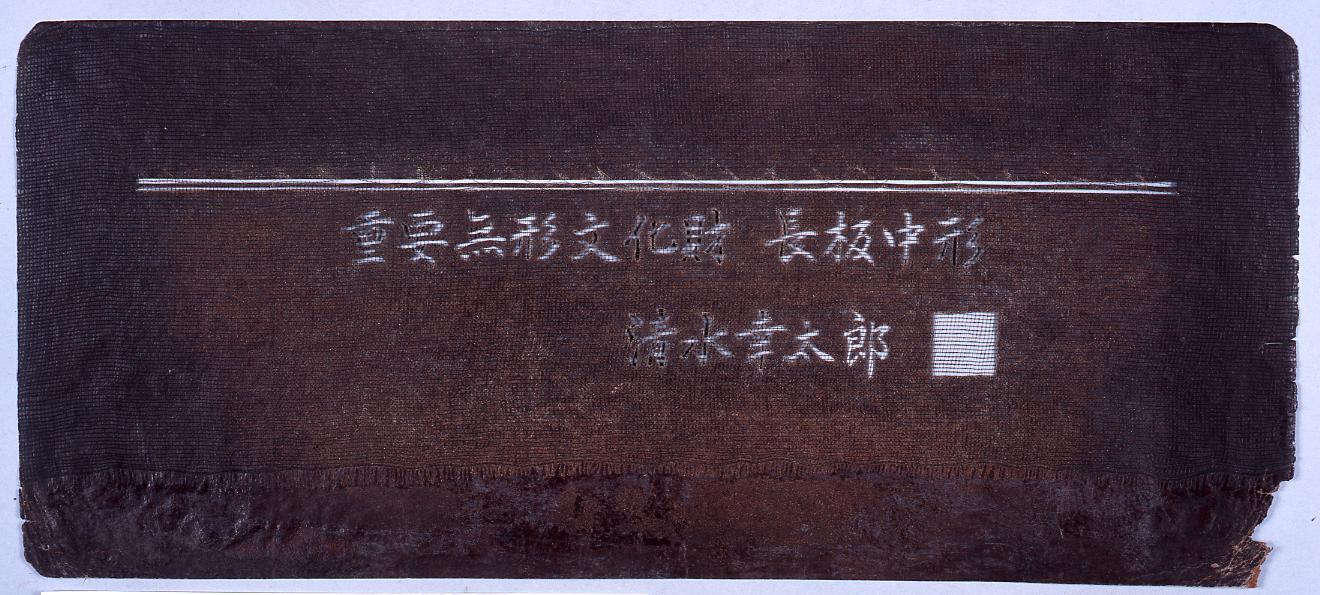 重要無形文化財 長板中形
清水幸太郎